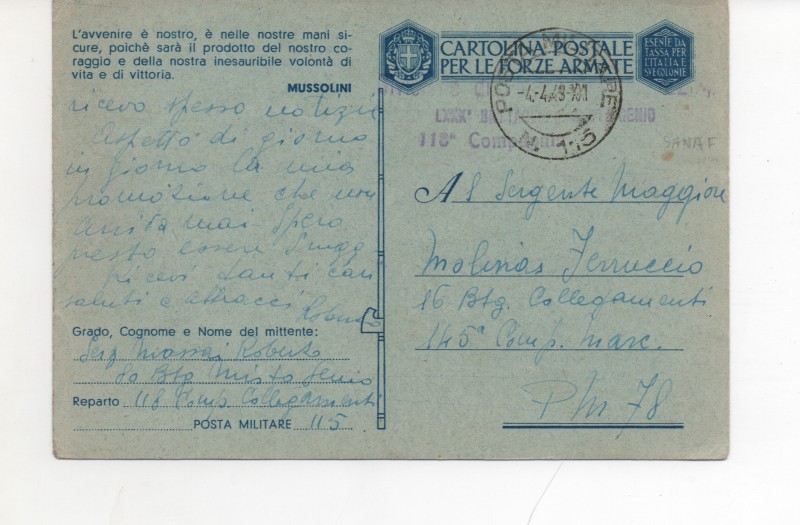 L'avvenire è nostro, è nelle nostre mani si-
cure, poichè sarà il prodotto del nostro co-
raggio e della nostra inesauribile volontà di
vita e di vittoria.
MUSSOLINI
ricevo spesso notizie
Aspetto di giorno
in giorno la mia
promozione che non
arriva mai Spero
presto essere
ricevi tanti cari
saluti e abbracci
Roberto
Grado, Cognome e Nome del mittente:
Serg Massai Roberto
80 Btg Misto Genio
Reparto 118 Comp Collegamenti
POSTA MILITARE 115
CARTOLINA POSTALE
PER LE FORZE ARMATE
ESENTE DA
TASSA PER
L'ITALIA E
SVE COLONIE
POSTA MILITARE
-4.-4.43-XXI
N. 115
LXXX° GENIO
118ª Compagnia
SANAF
Al Sergente Maggiore
Molinas Ferruccio
16 Btg. Collegamenti
145ª Comp. Marc.
P.M. 78